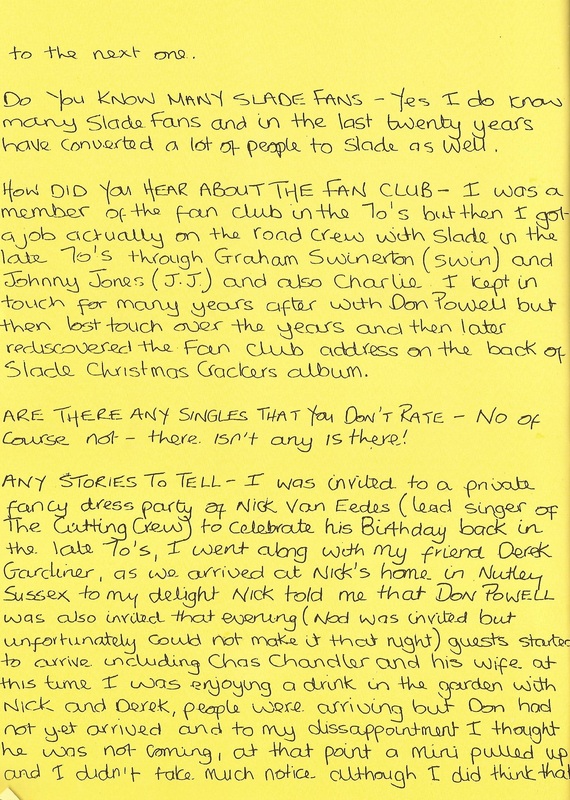 to the next one.
DO YOU KNOW MANY SLADE FANS - Yes I do know
many Slade Fans and in the last twenty years
have converted a lot of people to Slade as well.
HOW DID YOU HEAR ABOUT THE FAN CLUB - I was a
member of the fan club in the 70's but then I got
a job actually on the road crew with Slade in the
late 70's through Graham Swinerton (Swin) and
Johnny Jones (J.J.) and also Charlie. I kept in
touch for many years after with Don Powell but
then lost touch over the years and then later
rediscovered the Fan Club address on the back of
Slade Christmas Crackers album.
ARE THERE ANY SINGLES THAT YOU DON'T RATE - No of
course not - there isn't any is there!
ANY STORIES TO TELL - I was invited to a private
fancy dress party of Nick Van Eedes (lead singer of
The Cutting Crew) to celebrate his Birthday back in
the late 70's, I went along with my friend Derek
Gardiner, as we arrived at Nick's home in Nutley
Sussex to my delight Nick told me that DON POWELL
was also invited that evening (Nod was invited but
unfortunately could not make it that night) guests started
to arrive including Chas Chandler and his wife at
this time I was enjoying a drink in the garden with
Nick and Derek, people were arriving but Don had
not yet arrived and to my dissappointment I thought
he was not coming, at that point a mini pulled up
and I didn't take much notice although I did think that